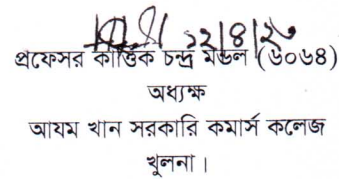 ১২/৪/২০
প্রফেসর কার্ত্তিক চন্দ্র মন্ডল (৬০৬৪)
অধ্যক্ষ
আযম খান সরকারি কমার্স কলেজ
খুলনা।